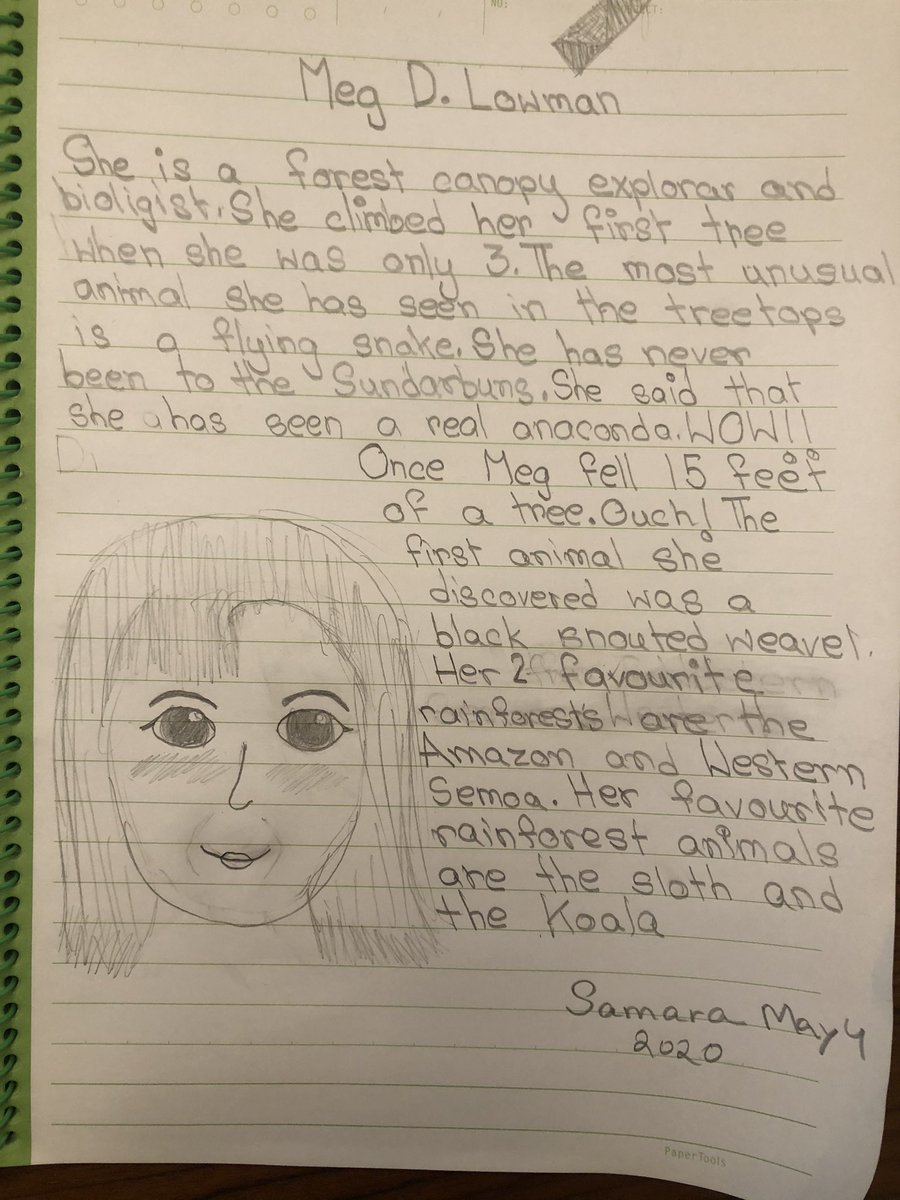 NO:
Meg D. Lowman
She is a forest canopy explorar and
bioligist. She climbed her first tree
when she was only 3. The most unusual
animal she has seen in the treetops
is a flying snake. She has never
been to the Sundarbuns. She said that
she ahas seen a real anaconda. WOW!!
Once Meg fell 15 feet
of a tree. Ouch! The
first animal she
discovered was a
black snouted weavel.
Her 2 favourite
rainforests are the
Amazon and Western
Semoa. Her favourite
rainforest animals
are the sloth and
the Koala
Samara May 4
2020
PaperTools